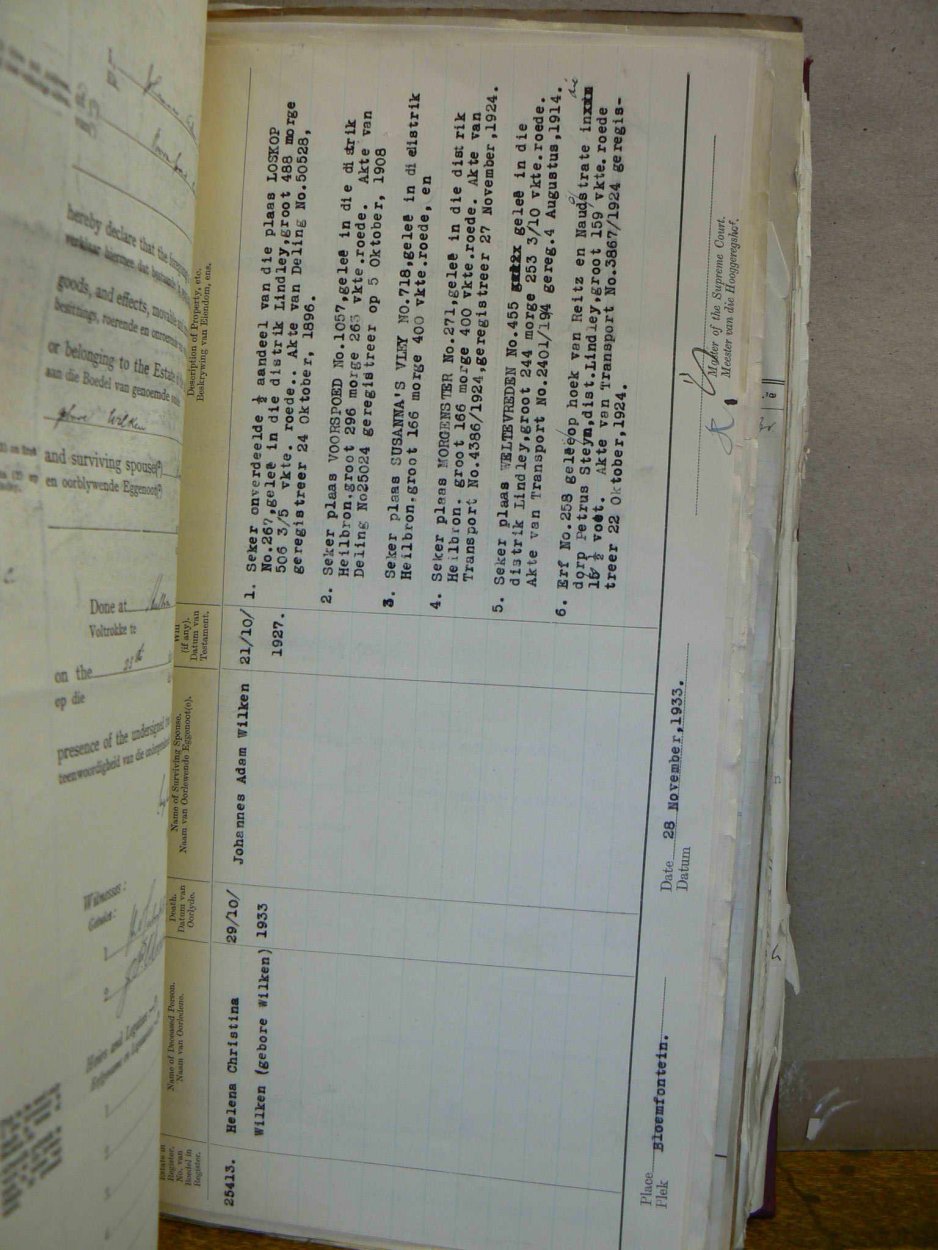 hereby declare that the foregoing
verklaar hiermee dat bestaande
goods, and effects, movable
besittings, roerende en onroerende
or belonging to the Estate
aan die Boedel van genoemde
gebore Wilken
and surviving spouse(²)
en oorblywende Eggenoot(²)
Done at
Voltrokke te
on the 25th
op die
presence of the undersigned
teenwoordigheid van die ondergetekende
Witnesses:
Getuies:
1
2
Estate in
Register.
No. van
Boedel in
Register.
Name of Deceased Person.
Naam van Oorledene.
Death.
Datum van
Oorlyde.
Name of Surviving Spouse.
Naam van Oorlewende Eggenoot(e).
Will
(if any).
Datum van
Testament.
Description of Property, etc.
Beskrywing van Eiendom, ens.
25413.
Helena Christina
Wilken (gebore Wilken)
29/10/
1933
Johannes Adam Wilken
21/10/
1927.
1. Seker onverdeelde ½ aandeel van die plaas LOSKOP
No.267,geleë in die distrik Lindley,groot 488 morge
506 3/5 vkte. roede.. Akte van Deling No.50528,
geregistreer 24 Oktober, 1896.
2. Seker plaas VOORSPOED No.1057,geleë in die distrik
Heilbron,groot 296 morge 263 vkte.roede. Akte van
Deling No25024 geregistreer op 5 Oktober, 1908
3. Seker plaas SUSANNA'S VLEY NO.718,geleë in die distrik
Heilbron,groot 166 morge 400 vkte.roede, en
4. Seker plaas MORGENSTER No.271,geleë in die distrik
Heilbron. groot 166 morge 400 vkte.roede. Akte van
Transport No.4386/1924,geregistreer 27 November,1924.
5. Seker plaas WELTEVREDEN No.455 geleë in die
distrik Lindley,groot 244 morge 253 3/10 vkte.roede.
Akte van Transport No.2401/1914 gereg.4 Augustus,1914.
6. Erf No.258 geleë op hoek van Reitz en Naudéstrate in die
dorp Petrus Steyn,dist.Lindley,groot 159 vkte.roede
voet. Akte van Transport No.3867/1924 geregis-
treer 22 Oktober,1924.
Place
Plek
Bloemfontein.
Date 28 November,1933.
Datum
Master of the Supreme Court.
Meester van die Hooggeregshof.